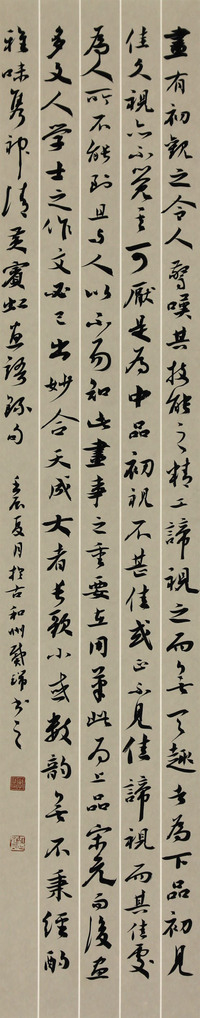 畫有初觀之令人驚嘆其技能之精工諦視之而無天趣者為下品初見
佳久視亦不覺其可厭是為中品初視不甚佳或正不見佳諦視而其佳處
為人所不能到且與人以不易知此畫事之重要在用筆此為上品宋元而後画
多文人学士之作文必己出妙合天成大者長歌小或数韵無不秉经酌
雅味隽神清黄賓虹画語録句
壬辰夏月於古和州戴瑞书之